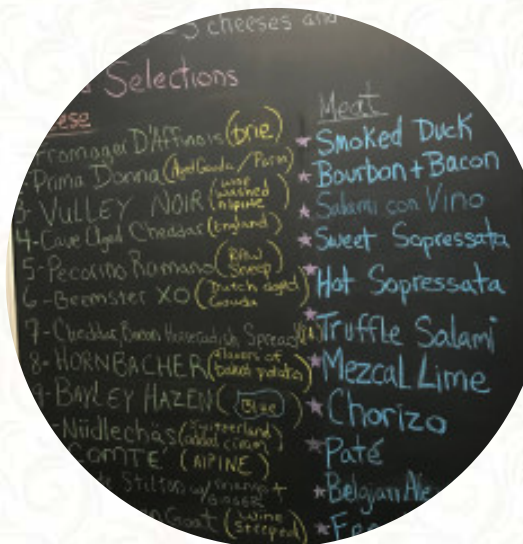 3 cheeses and
Selections
Fromager D'Affinois (brie)
Prima Donna (Aged Gouda / Parm)
3- VULLEY NOIR (wine washed alpine)
4- Cave Aged Cheddar (England)
5- Pecorino Romano (RAW Sheep)
6- Beemster XO (Dutch aged Gouda)
7- Cheddar, Bacon Horseradish Spread
8- HORNBACHER (flavors of baked potato)
9- BAYLEY HAZEN (Blue)
Nüdlechäs (Switzerland added cream)
COMTÉ (AlPINE)
Stilton w/ mango + GINGER
Goat (wine steeped)
Meat
★ Smoked Duck
★ Bourbon + Bacon
★ Salami con Vino
★ Sweet Sopressata
★ Hot Sopressata
★ Truffle Salami
★ Mezcal Lime
★ Chorizo
★ Paté
★ Belgian Ale